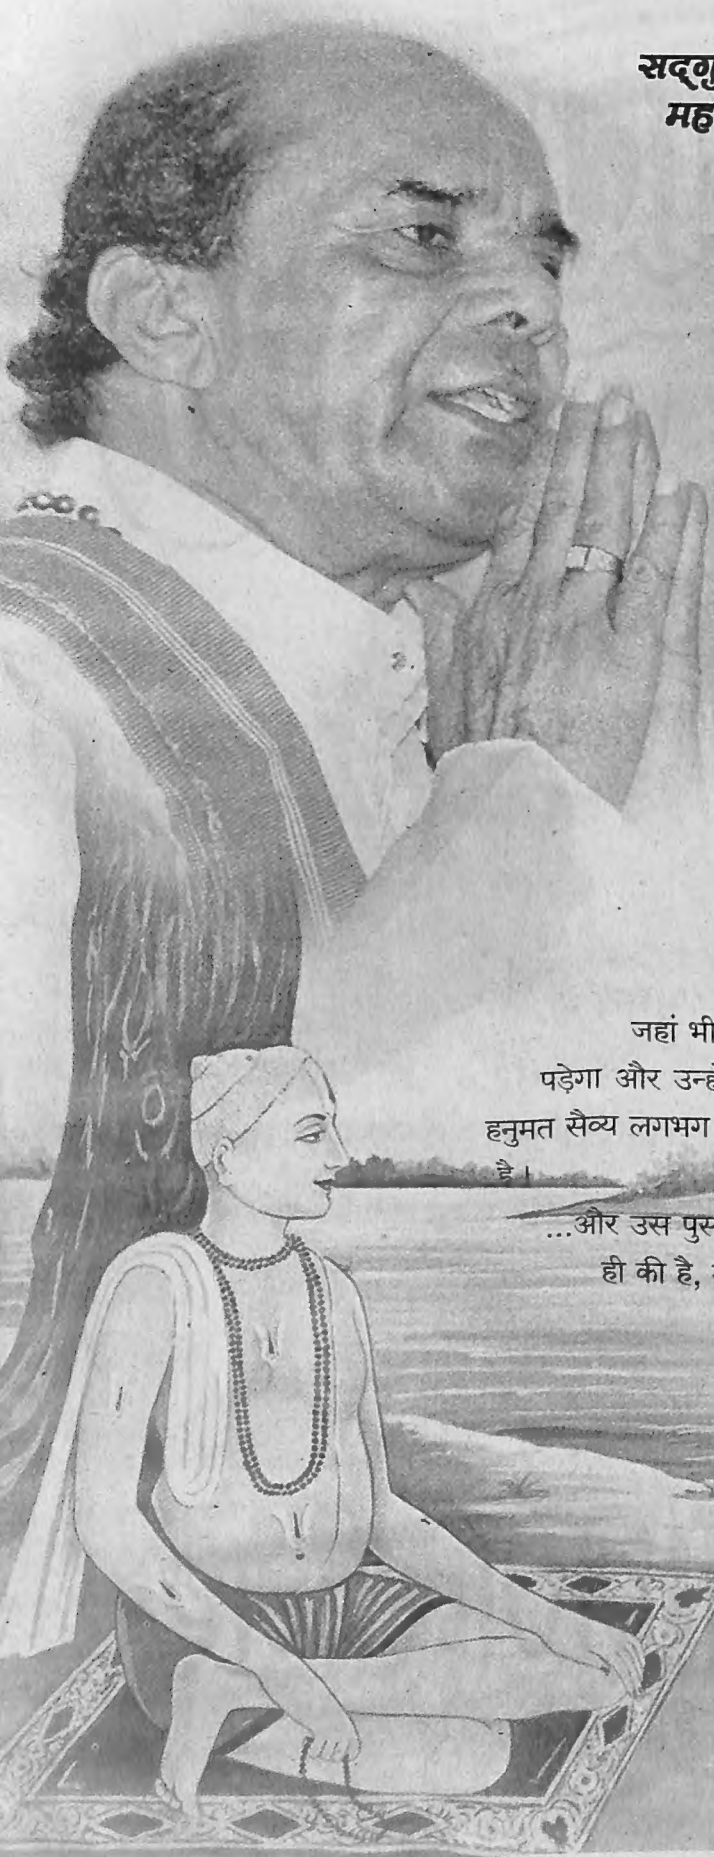 सद्‌गु
मह
जहां भी
पड़ेगा और उन्ह
हनुमत सैव्य लगभग
है।
...और उस पुस
ही की है,